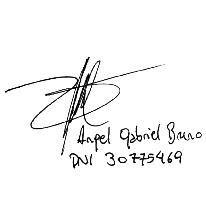 Angel Gabriel Bruno
DNI 30775469